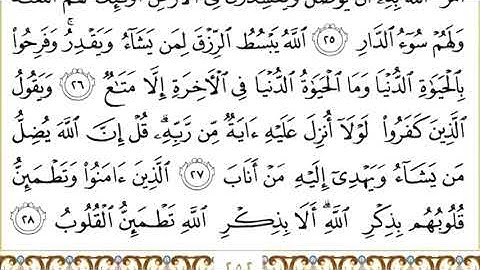 أَمَرَ ٱللَّهُ بِهِۦٓ أَن يُوصَلَ وَيُفْسِدُونَ فِى ٱلْأَرْضِ أُو۟لَٰٓئِكَ لَهُمُ ٱللَّعْنَةُ
وَلَهُمْ سُوٓءُ ٱلدَّارِ ٢٥ ٱللَّهُ يَبْسُطُ ٱلرِّزْقَ لِمَن يَشَآءُ وَيَقْدِرُ ۚ وَفَرِحُوا۟
بِٱلْحَيَوٰةِ ٱلدُّنْيَا وَمَا ٱلْحَيَوٰةُ ٱلدُّنْيَا فِى ٱلْءَاخِرَةِ إِلَّا مَتَٰعٌ ٢٦ وَيَقُولُ
ٱلَّذِينَ كَفَرُوا۟ لَوْلَآ أُنزِلَ عَلَيْهِ ءَايَةٌ مِّن رَّبِّهِۦ ۗ قُلْ إِنَّ ٱللَّهَ يُضِلُّ
مَن يَشَآءُ وَيَهْدِىٓ إِلَيْهِ مَنْ أَنَابَ ٢٧ ٱلَّذِينَ ءَامَنُوا۟ وَتَطْمَئِنُّ
قُلُوبُهُم بِذِكْرِ ٱللَّهِ ۗ أَلَا بِذِكْرِ ٱللَّهِ تَطْمَئِنُّ ٱلْقُلُوبُ ٢٨
٢٥٢